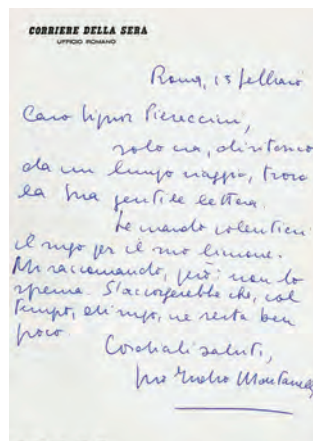 CORRIERE DELLA SERA
UFFICIO ROMANO
Roma, 15 febbraio
Caro Signor Piereccini,
solo ora, di ritorno
da un lungo viaggio, trovo
la Sua gentile lettera.
Le mando volentieri
il sugo per il suo limone.
Mi raccomando, però: non lo
sprema. S'accorgerebbe che, col
tempo, di sugo, ne resta ben
poco.
Cordiali saluti,
suo Indro Montanelli